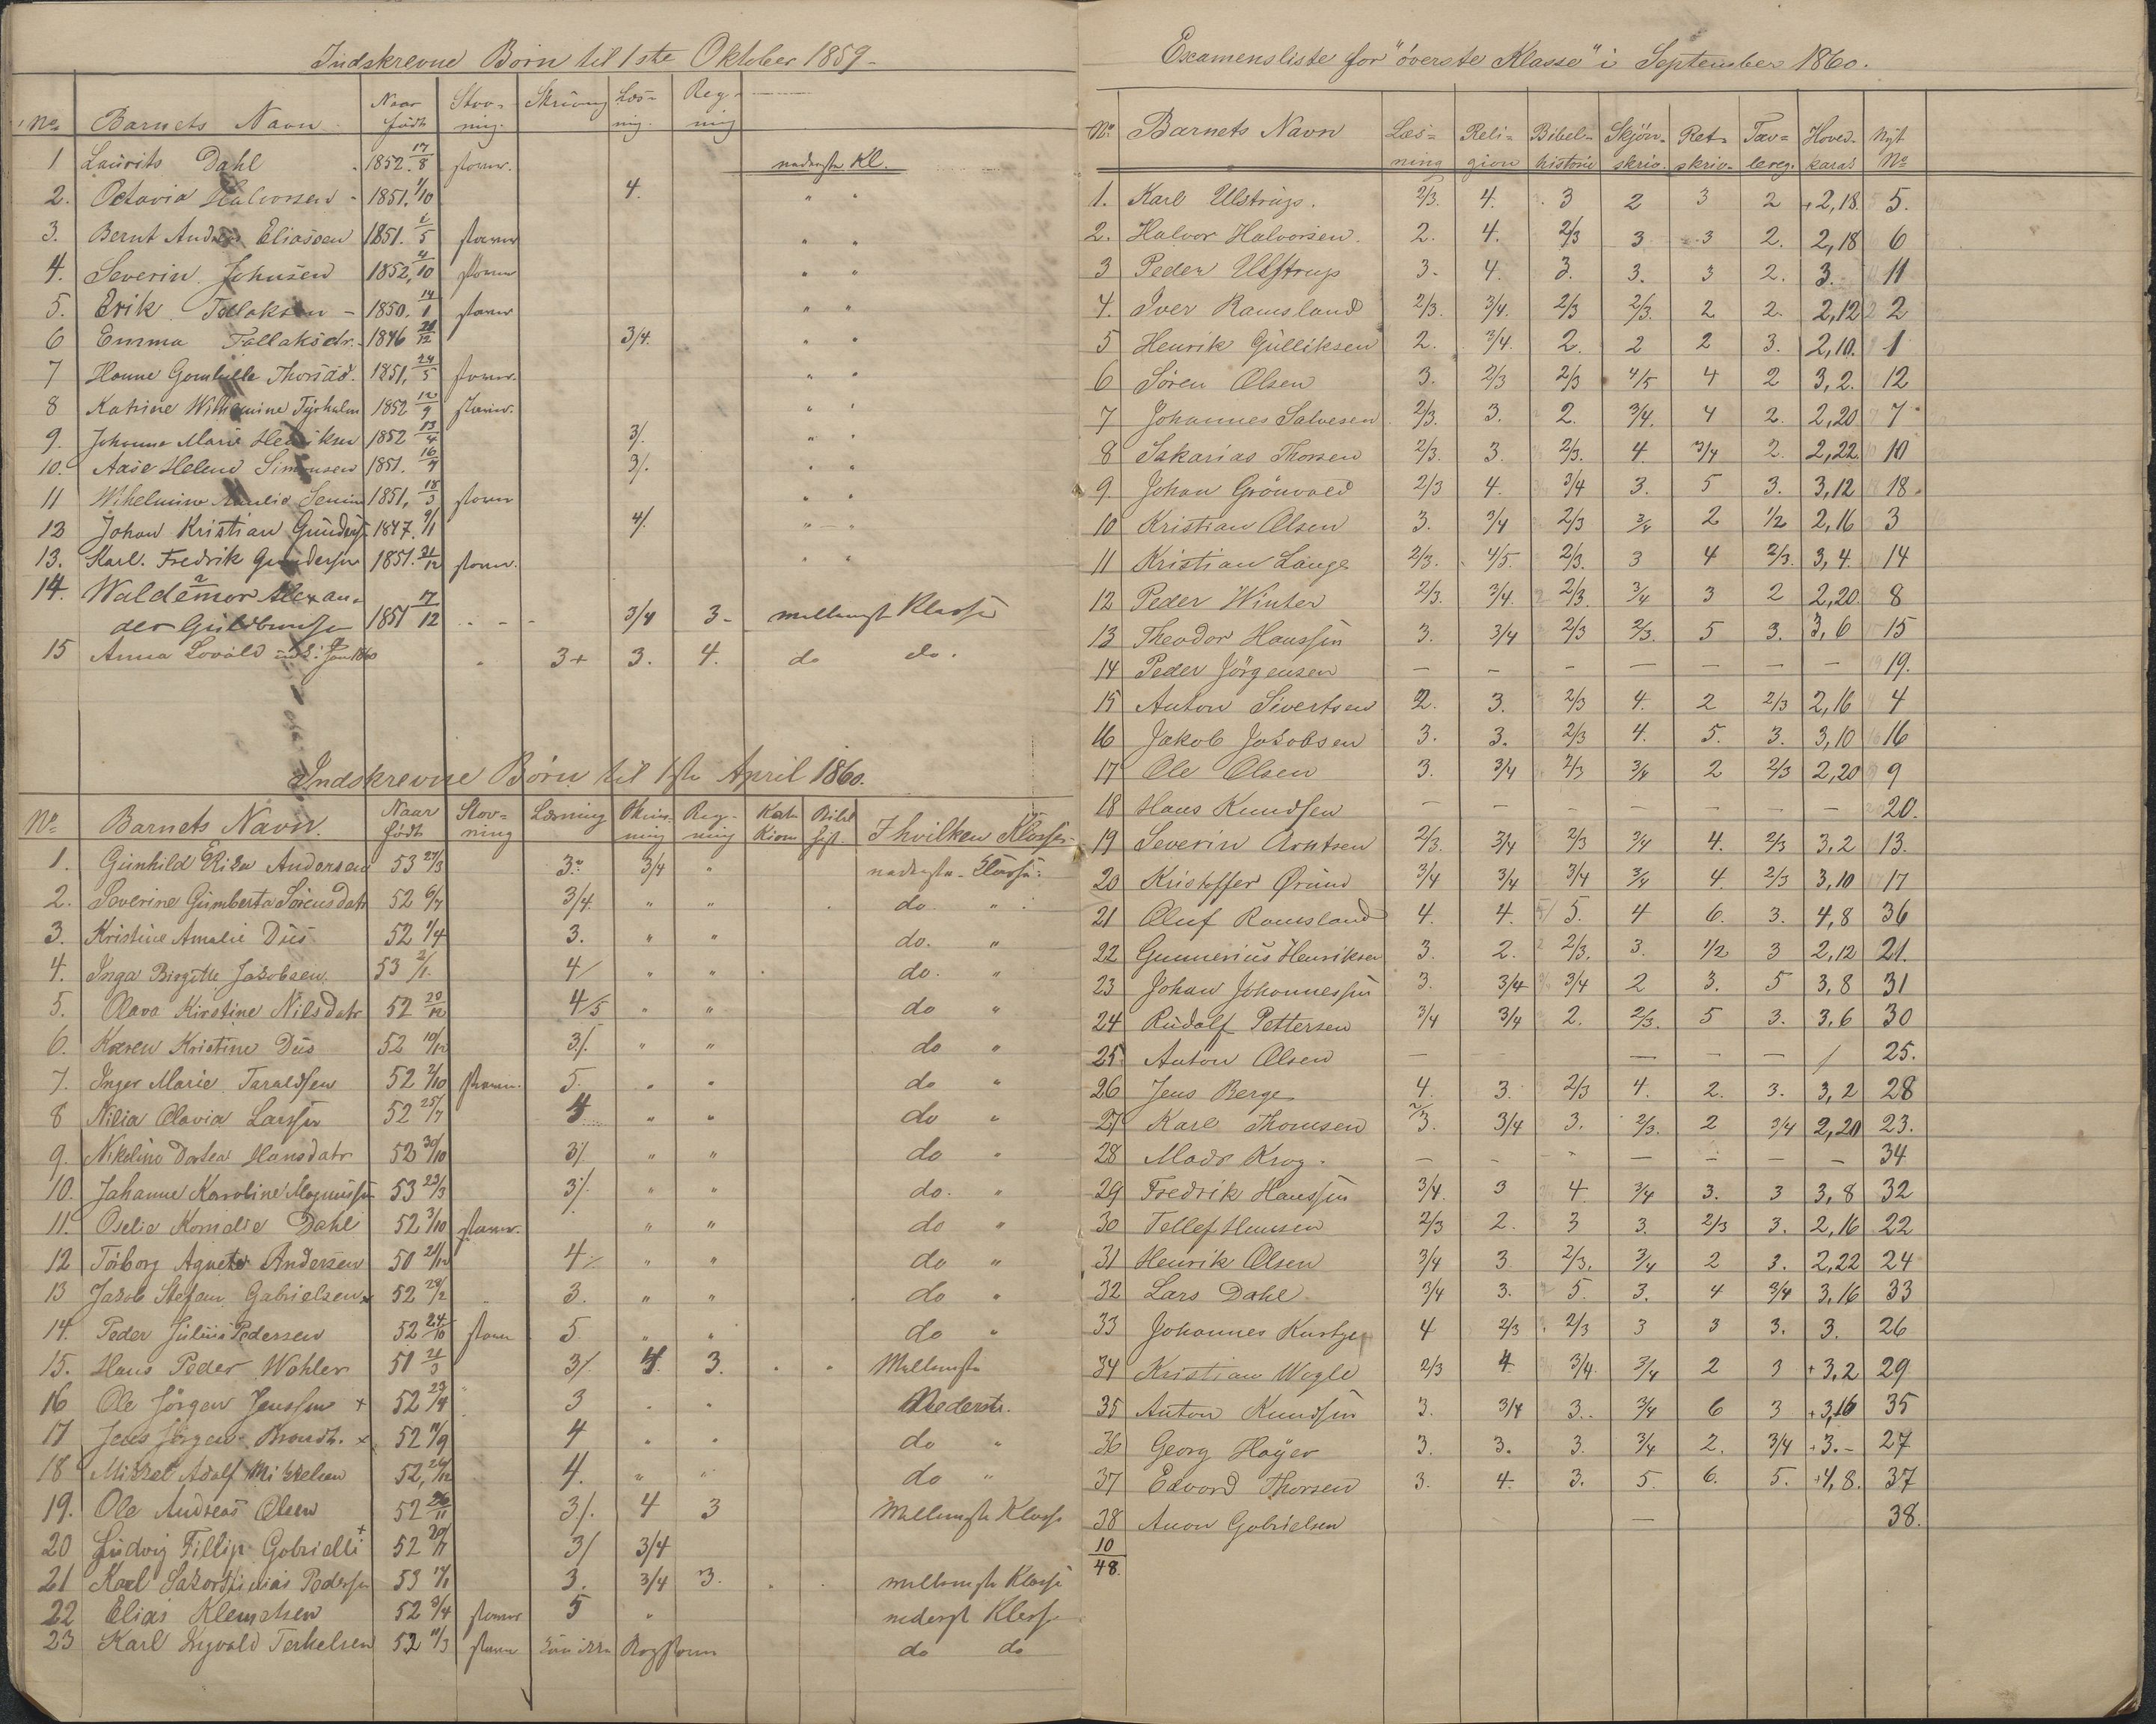 Indskrevne Börn til 1ste Oktober 1859 -
No Barnets Navn Naar födt Stav-ning. Skrivng Læs-ning. Reg-ning
1 Laurits Dahl 1852. 17/8 staver. nederste Kl.
2. Octavia Halvorsen - 1851. 1/10 4. " "
3. Bernt Andreas Eliassen 1851. /5 staver " "
4. Severin Johnsen 1852, /10 staver " "
5. Erik Tellaksen - 1850. 14/1 staver " "
6 Emma Tellaksdr. 1846 /12 3/4. " "
7 Hanne Gunhilde Thorsdr. 1851, 24/5 staver. " "
8 Katrine Wilhemine Tyrholm 1852 12/9 staver. " "
9. Johanne Marie Henriksen 1852 13/4 3/. " "
10. Aase Helene Simonsen 1851. 16/ 3/. " "
11 Wilhelmine Amalie 1851, 18/3 staver " "
12 Johan Kristian Gunders. 1847. 9/11 4/. " "
13. Karl. Fredrik Gundersen 1851. /12 staver. " "
14. Waldemar Alexan-
der Guldbrands 1851 17/12 - - - 3/4 3- mellemste Klasse
15 Anna Lovald Jan 1860 " 3+ 3. 4. do do.
Indskrevne Börn til 1ste April 1860.
No Barnets Navn. Naar födt Stav-ning Læsning Skriv-ning Reg-ning Kate Bibl hist. I hvilken Klasse
1. Gunhild Elisa Andersen 53 27/3 3. 3/4 " nederste Klasse.
2. Severine Gumberta Sörensdatr 52 6/7 3/4. " " do. "
3. Kristine Amalie Diis 52 1/4 3. " " do. "
4. Inga Birgitte Jakobsen. 53 2/1. 4/ " " do. "
5. Olava Kirstine Nilsdatr 52 20/12 4/5 " " do "
6. Karen Kristine Diis 52 10/12 3/. " " do "
7. Inger Marie Taraldsen 52 2/10 staver. 5. " " do "
8 Nilia Olavia Larssen 52 25/7 4 " " do "
9. Nikoline Dortea Hansdatr 52 30/10 3/ " " do "
10. Johanne Karoline Magnussen 53 23/3 3/. " " do. "
11. Oselie Komelie Dahl 52 3/10 staver. " " do "
12 Torborg Agnete Andersen 50 21/12 4/ " " do "
13 Jakob Stefan Gabrielsen x 52 28/2 3. " " do "
14. Peder Julius Pedersen 52 24/10 staver 5. " " do "
15. Hans Peder Wahler 51 21/3 3/. 4. 3. " " Mellemste
16 Ole Jörgen Jenssen x 52 23/4 " 3 " " Nederste.
17 Jens Jörgen Brandt. x 52 11/9 4 " " do "
18 Mikkel Adolf Mikkelsen 52, /12 4. " " do "
19. Ole Andreas Olsen 52 26/11 3/. 4 3 Mellemste Klasse
20 Ludvig Fillip Gabrielli + 52 29/ 3/ 3/4
21 Karl Pedersen 53 11/1 3. 3/4 3. mellemste Klasse
22 Elias Klemetsen 52 3/4 staver 5 " nederst Klasse
23 Karl Ingvald Terkelsen 52 11/3 staver Bogstaver do do
Examensliste for "överste Klasse" i September 1860.
No Barnets Navn Læs-ning Reli-gion Bibel-historie Skjön-skriv. Ret-skriv- Tav-lereg. Hoved-karak Nyt No
1. Karl Ulstrup. 2/3. 4. 3 2 3 2 +2,18. 5.
2. Halvor Halvorsen. 2. 4. 2/3 3 3 2. 2,18 6
3 Peder Ulstrup 3. 4. 3. 3. 3 2. 3. 11
4. Iver Ramsland 2/3. 3/4. 2/3 2/3. 2 2. 2,12 2
5 Henrik Gulliksen 2. 3/4. 2. 2 2 3. 2,10. 1
6 Sören Olsen 3. 2/3 2/3 4/5 4 2 3,2. 12
7 Johannes Salvesen 2/3. 3. 2. 3/4. 4 2. 2,20 7
8 Sakarias Thorsen 2/3. 3. 2/3. 4. 3/4 2. 2,22 10
9. Johan Grönvold 2/3 4. 3/4 3. 5 3. 3,12 18.
10 Kristian Olsen 3. 3/4 2/3 3/4 2 1/2 2,16 3
11 Kristian Lange 2/3. 4/5. 2/3. 3 4 2/3. 3,4. 14
12 Peder Winter 2/3. 3/4. 2/3. 3/4 3 2 2,20. 8
13 Theodor Hanssen 3. 3/4 2/3 2/3. 5 3. 3,6 15
14 Peder Jörgensen - - - - - - - 19.
15 Anton Sivertsen 2. 3. 2/3 4. 2 2/3 2,16 4
16 Jakob Jakobsen 3. 3. 2/3 4. 5. 3. 3,10 16
17 Ole Olsen 3. 3/4 2/3 3/4 2 2/3 2,20 9
18 Hans Knudsen - - - - - - - 20.
19 Severin Arntsen 2/3. 3/4 2/3 3/4 4. 2/3 3,2 13.
20 Kristoffer Ørund 3/4 3/4 3/4 3/4 4. 2/3 3,10 17
21 Oluf Ramsland 4. 4. 5. 4 6. 3. 4,8 36
22 Gunnerius Henriksen 3. 2. 2/3. 3. 1/2 3 2,12 21.
23 Johan Johannessen 3. 3/4 3/4 2 3. 5 3,8 31
24 Rudolf Pettersen 3/4 3/4 2. 2/3. 5 3. 3,6 30
25 Anton Olsen - - - - / 25.
26 Jens Berge 4. 3. 2/3 4. 2. 3. 3,2 28
27 Karl Thomsen 2/3. 3/4 3. 2/3. 2 3/4 2,20 23.
28 Mads Krog. - - - - - - - 34
29 Fredrik Hanssen 3/4. 3 4. 3/4 3. 3 3,8 32
30 Tellef Hansen 2/3 2. 3 3. 2/3 3. 2,16 22
31 Henrik Olsen 3/4 3. 2/3. 3/4 2 3. 2,22 24
32 Lars Dahl. 3/4 3. 5. 3. 4 3/4 3,16 33
33 Johannes Kurtzen 4 2/3 2/3 3 3 3. 3. 26
34 Kristian Wegle 2/3 4 3/4. 3/4 2 3 +3,2 29
35 Anton Knudsen 3. 3/4 3. 3/4 6 3 +3,16 35
36 Georg Høyer 3. 3. 3. 3/4 2. 3/4 +3.- 27
37 Edvard Thorsen 3. 4. 3. 5. 6. 5. +4,8. 37
38 Anon Gabrielsen - 38.
10
48.